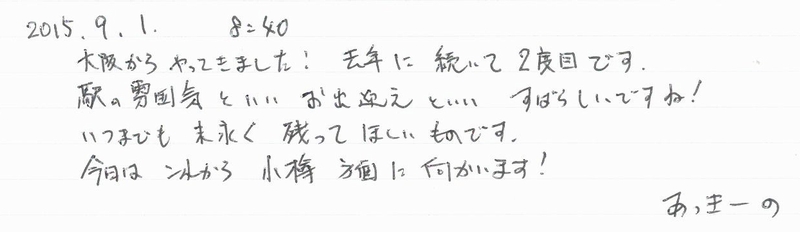 2015.9.1. 8:40
大阪からやってきました! 去年に続いて2度目です.
駅の雰囲気といいお出迎えといいすばらしいですね!
いつまでも末永く残ってほしいものです.
今日はこれから小樽方面に向かいます!
あっきーの